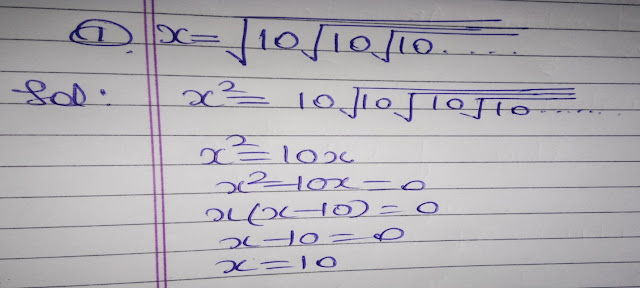 ① x=√10√10√10.....
Sol: x²= 10√10√10√10......
x²=10x
x²-10x=0
x(x-10)=0
x-10=0
x=10